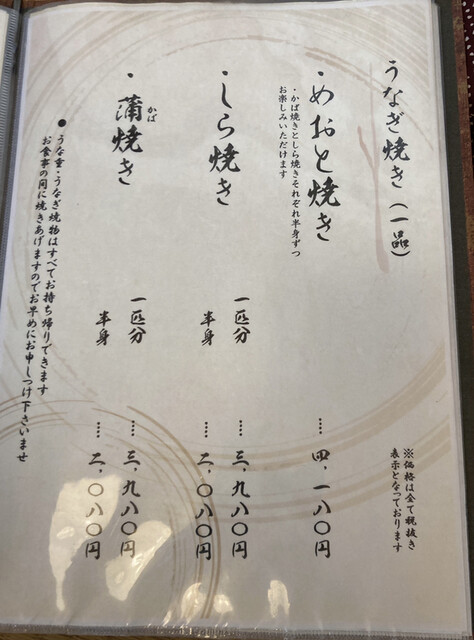 うなぎ焼き（一品）
※価格は全て税抜き
表示となっております
・めおと焼き
・・・・四、一八〇円
・かば焼きとしら焼きそれぞれ半身ずつ
お楽しみいただけます
・しら焼き
一匹分・・・・三、九八〇円
半身・・・・二、〇八〇円
・蒲焼き
かば
一匹分・・・・三、九八〇円
半身・・・・二、〇八〇円
●うな重・うなぎ焼物はすべてお持ち帰りできます
お食事の間に焼きあげますのでお早めにお申しつけ下さいませ